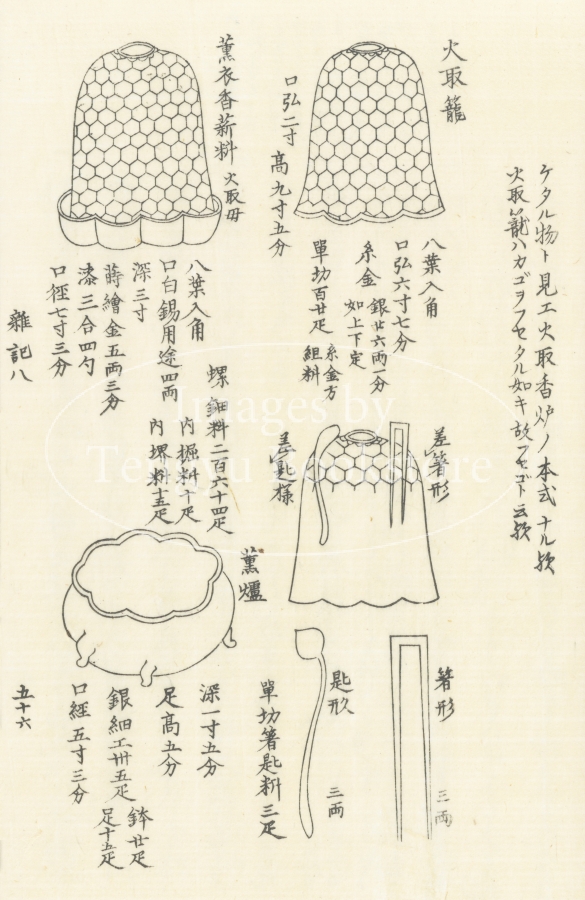 ケタル物ト見エ火取香炉ノ本式ナル歟
火取籠ハカゴヲフセタル如キ故フセゴト云歟
火取籠
口弘二寸
高九寸五分
八葉入角
口弘六寸七分
糸金 銀廿六両一分
如上下定
單功百廿疋 糸金方
組料
薫衣香薪料 火取母
八葉入角
口白錫用途四両
深三寸
蒔繪金五両三分
漆三合四勺
口径七寸三分
螺鈿料二百六十四疋
内掘料十疋
内堺料十五疋
雜記八
差箸形
差匙様
箸形 三両
匙形 三両
單功箸匙料三疋
薫爐
深一寸五分
足高五分
銀細工卅五疋 鉢廿疋
足十五疋
口経五寸三分
五十六
Images by
Tengyu Bookstore